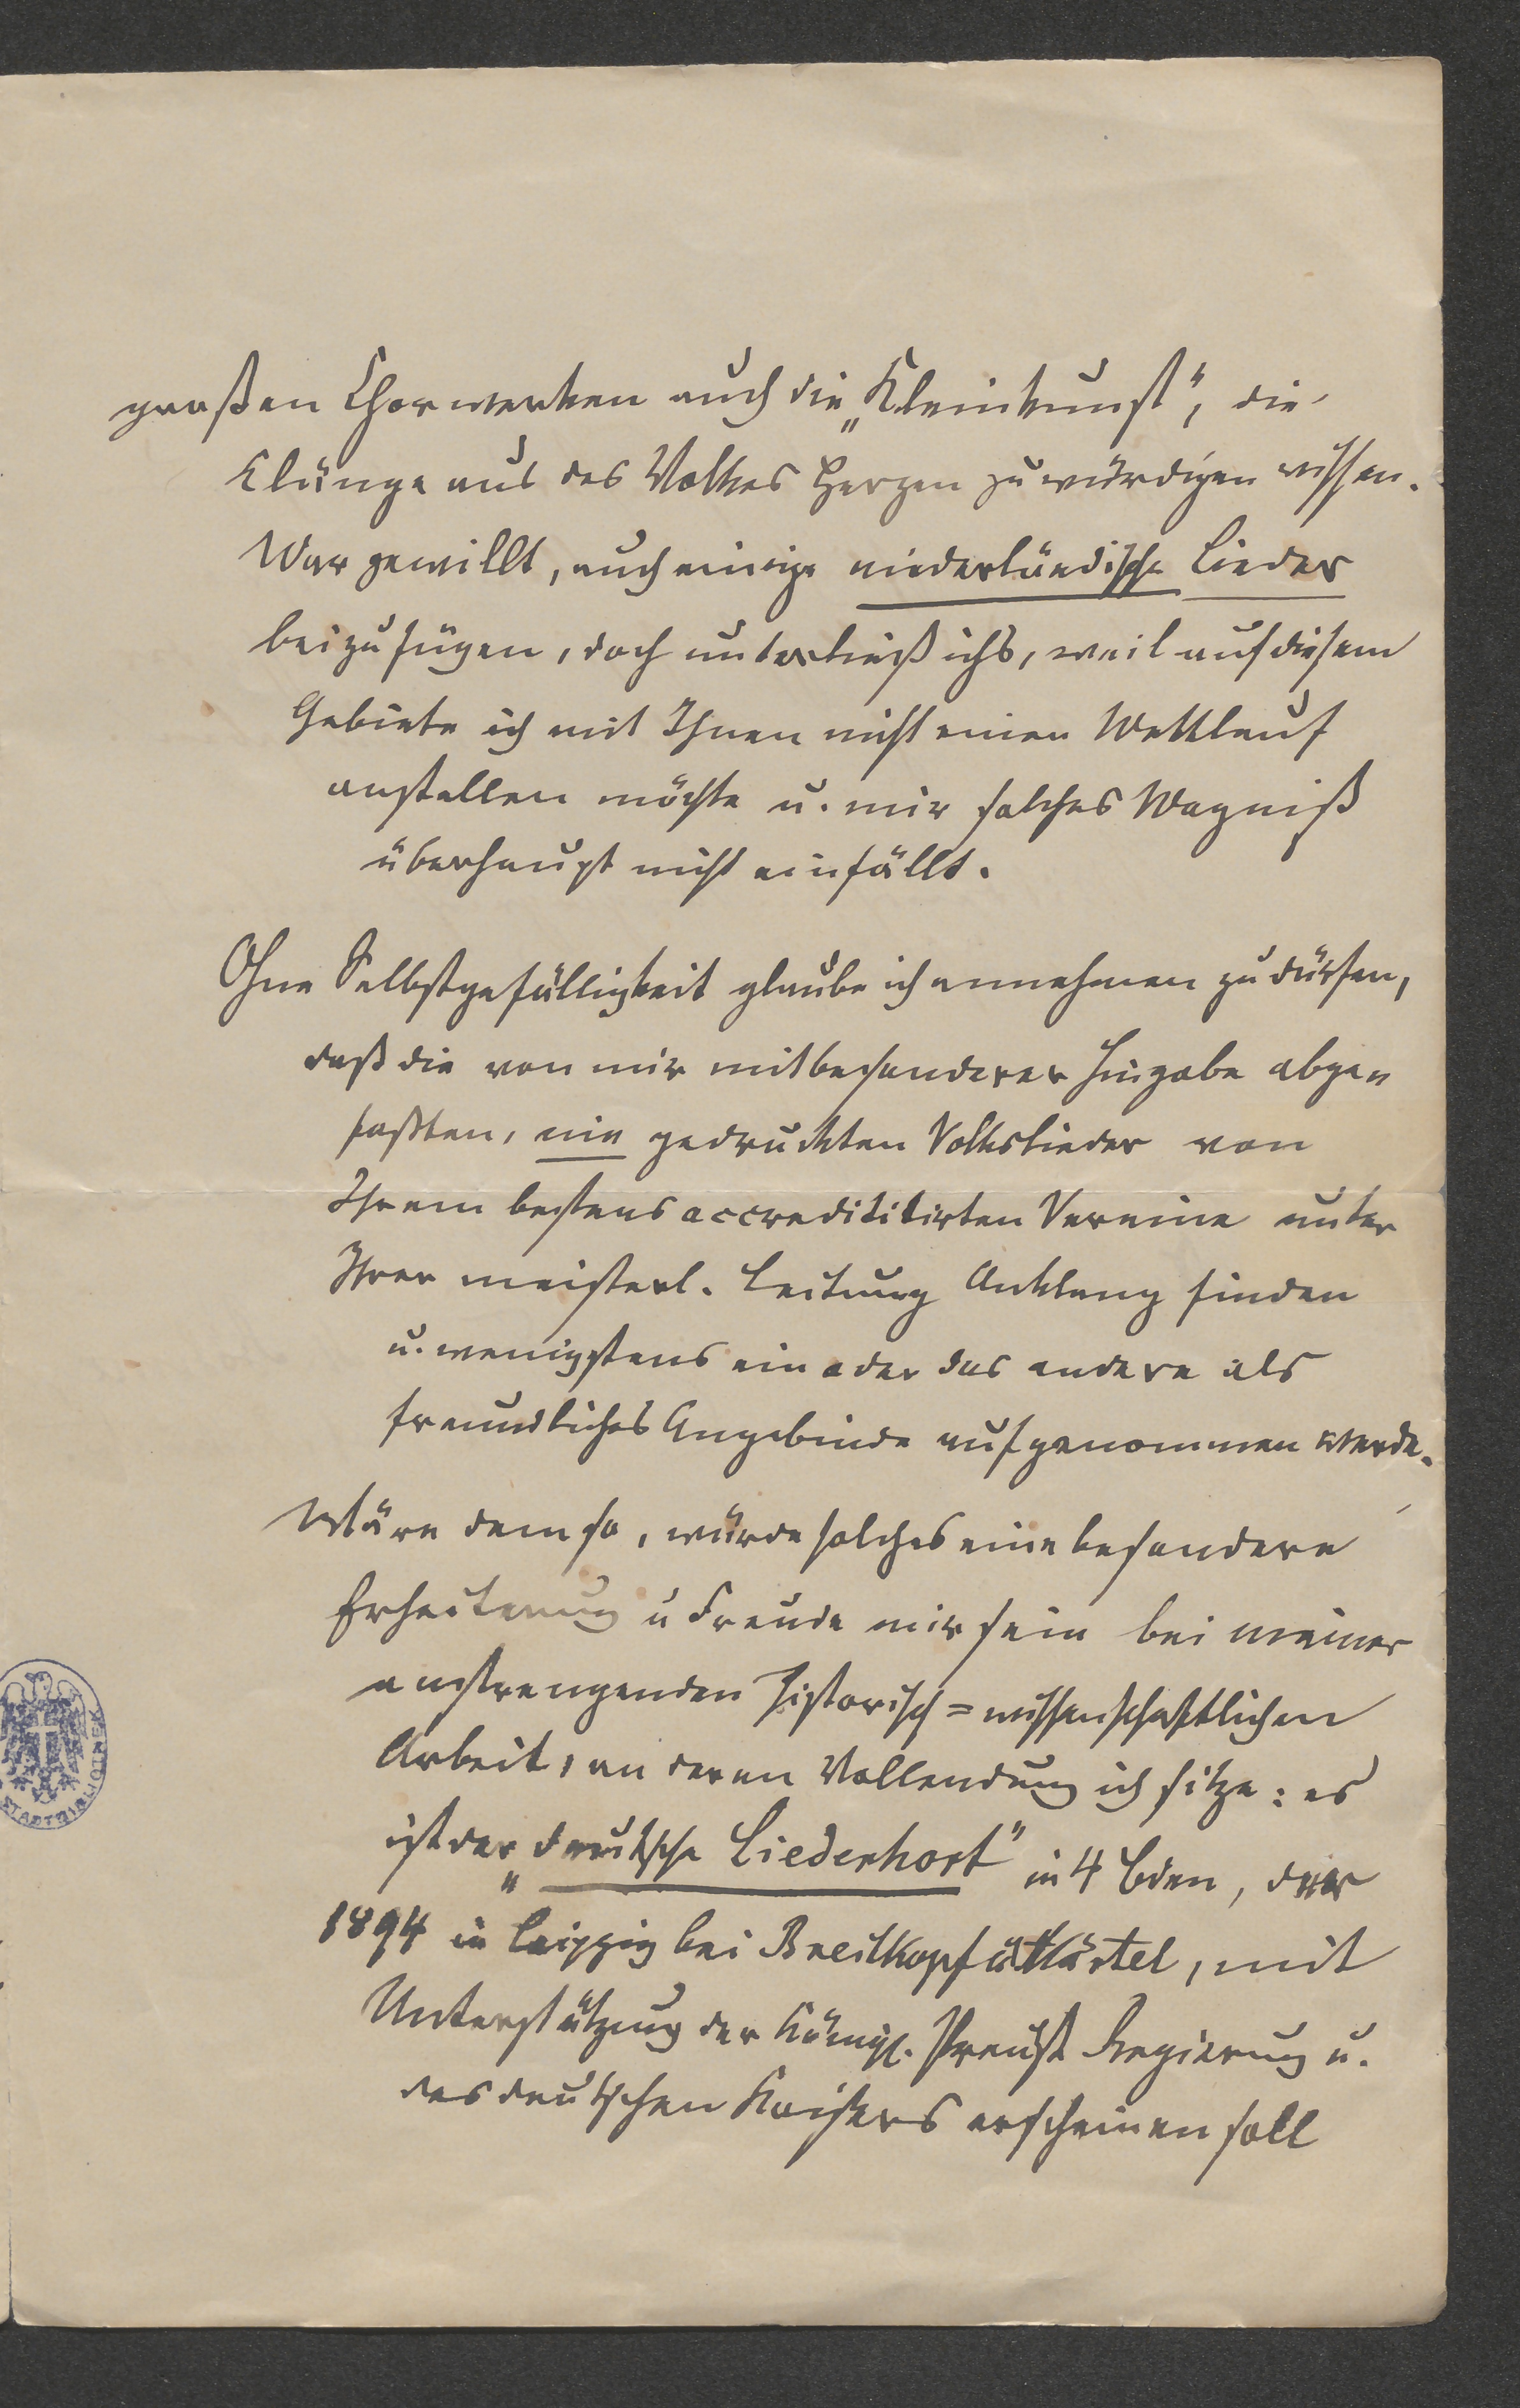 großen Chorwerken auch die „Kleinkunst", die
Klänge aus des Volkes Herzen zu würdigen wissen.
War gewillt, auch einige niederländische Lieder
beizufügen, doch unterließ ichs, weil auf diesem
Gebiete ich mit Ihnen nicht einen Wettlauf
anstellen möchte u. mir solches Wagniß
überhaupt nicht einfällt.
Ohne Selbstgefälligkeit glaube ich annehmen zu dürfen,
daß die von mir mit besonderer Hingabe abge=
faßten, nie gedruckten Volkslieder von
Ihrem bestens accredititirten Vereine unter
Ihrer meisterl. Leitung Anklang finden
u. wenigstens ein oder das andere als
freundliches Angebinde aufgenommen werde.
Wäre dem so, würde solches eine besondere
Erheiterung u Freude mir sein bei meiner
anstrengenden historisch=wissenschaftlichen
Arbeit, an deren Vollendung ich sitze: es
ist der „deutsche Liederhort" in 4 Bden, der
1894 in Leipzig bei Breitkopf u Härtel, mit
Unterstützung der Königl. Preuß Regierung u.
des deutschen Kaisers erscheinen soll
STADTBIBLIOTHEK